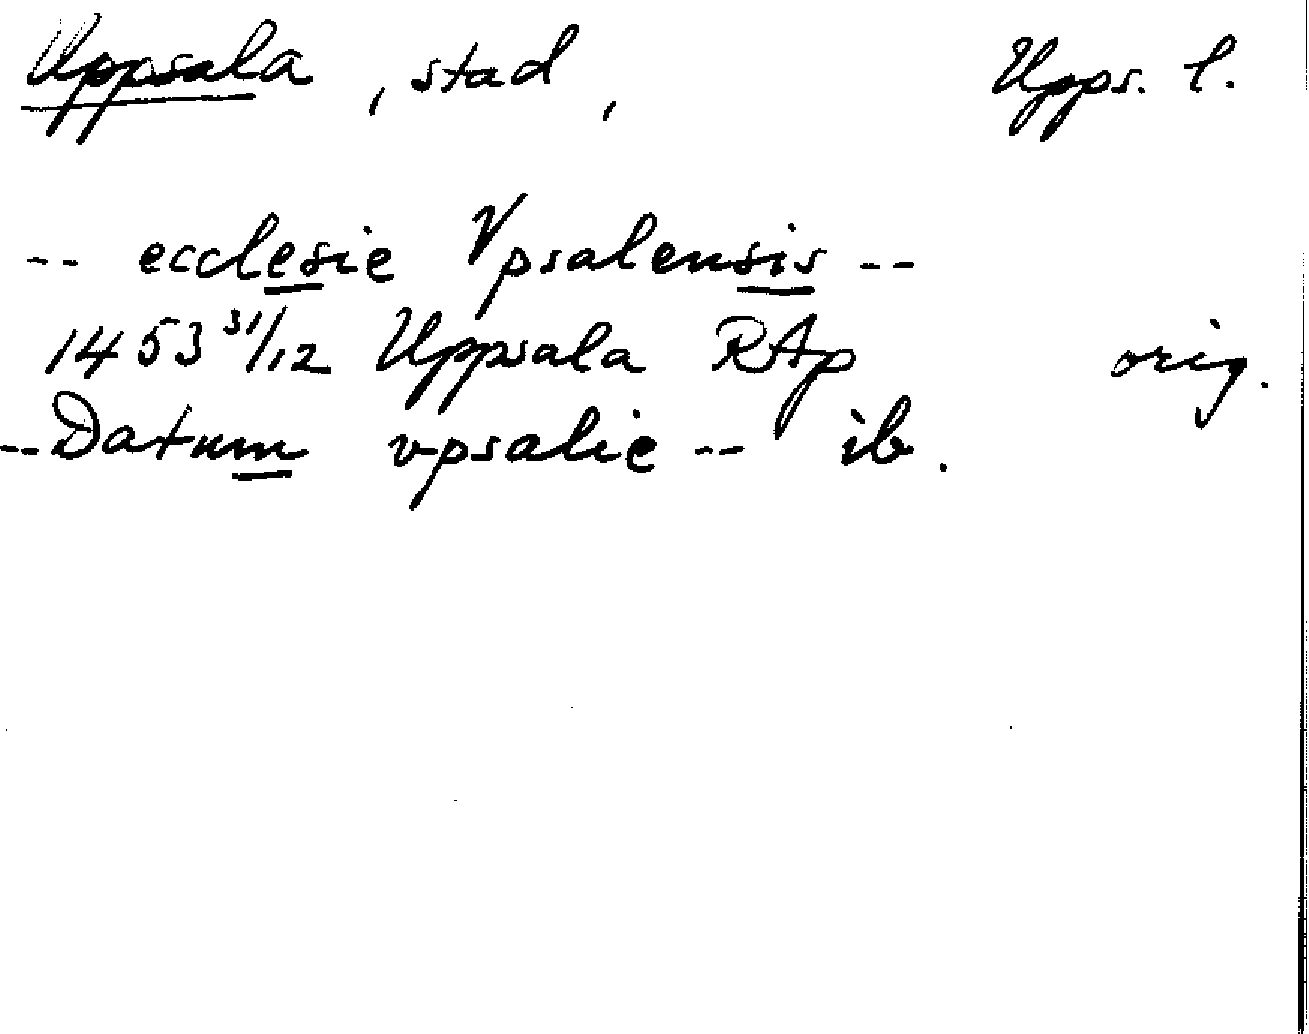 Uppsala, stad, Upps. l.
-- ecclesie Vpsalensis --
1453 31/12 Uppsala RAp orig.
-- Datum vpsalie -- ib.